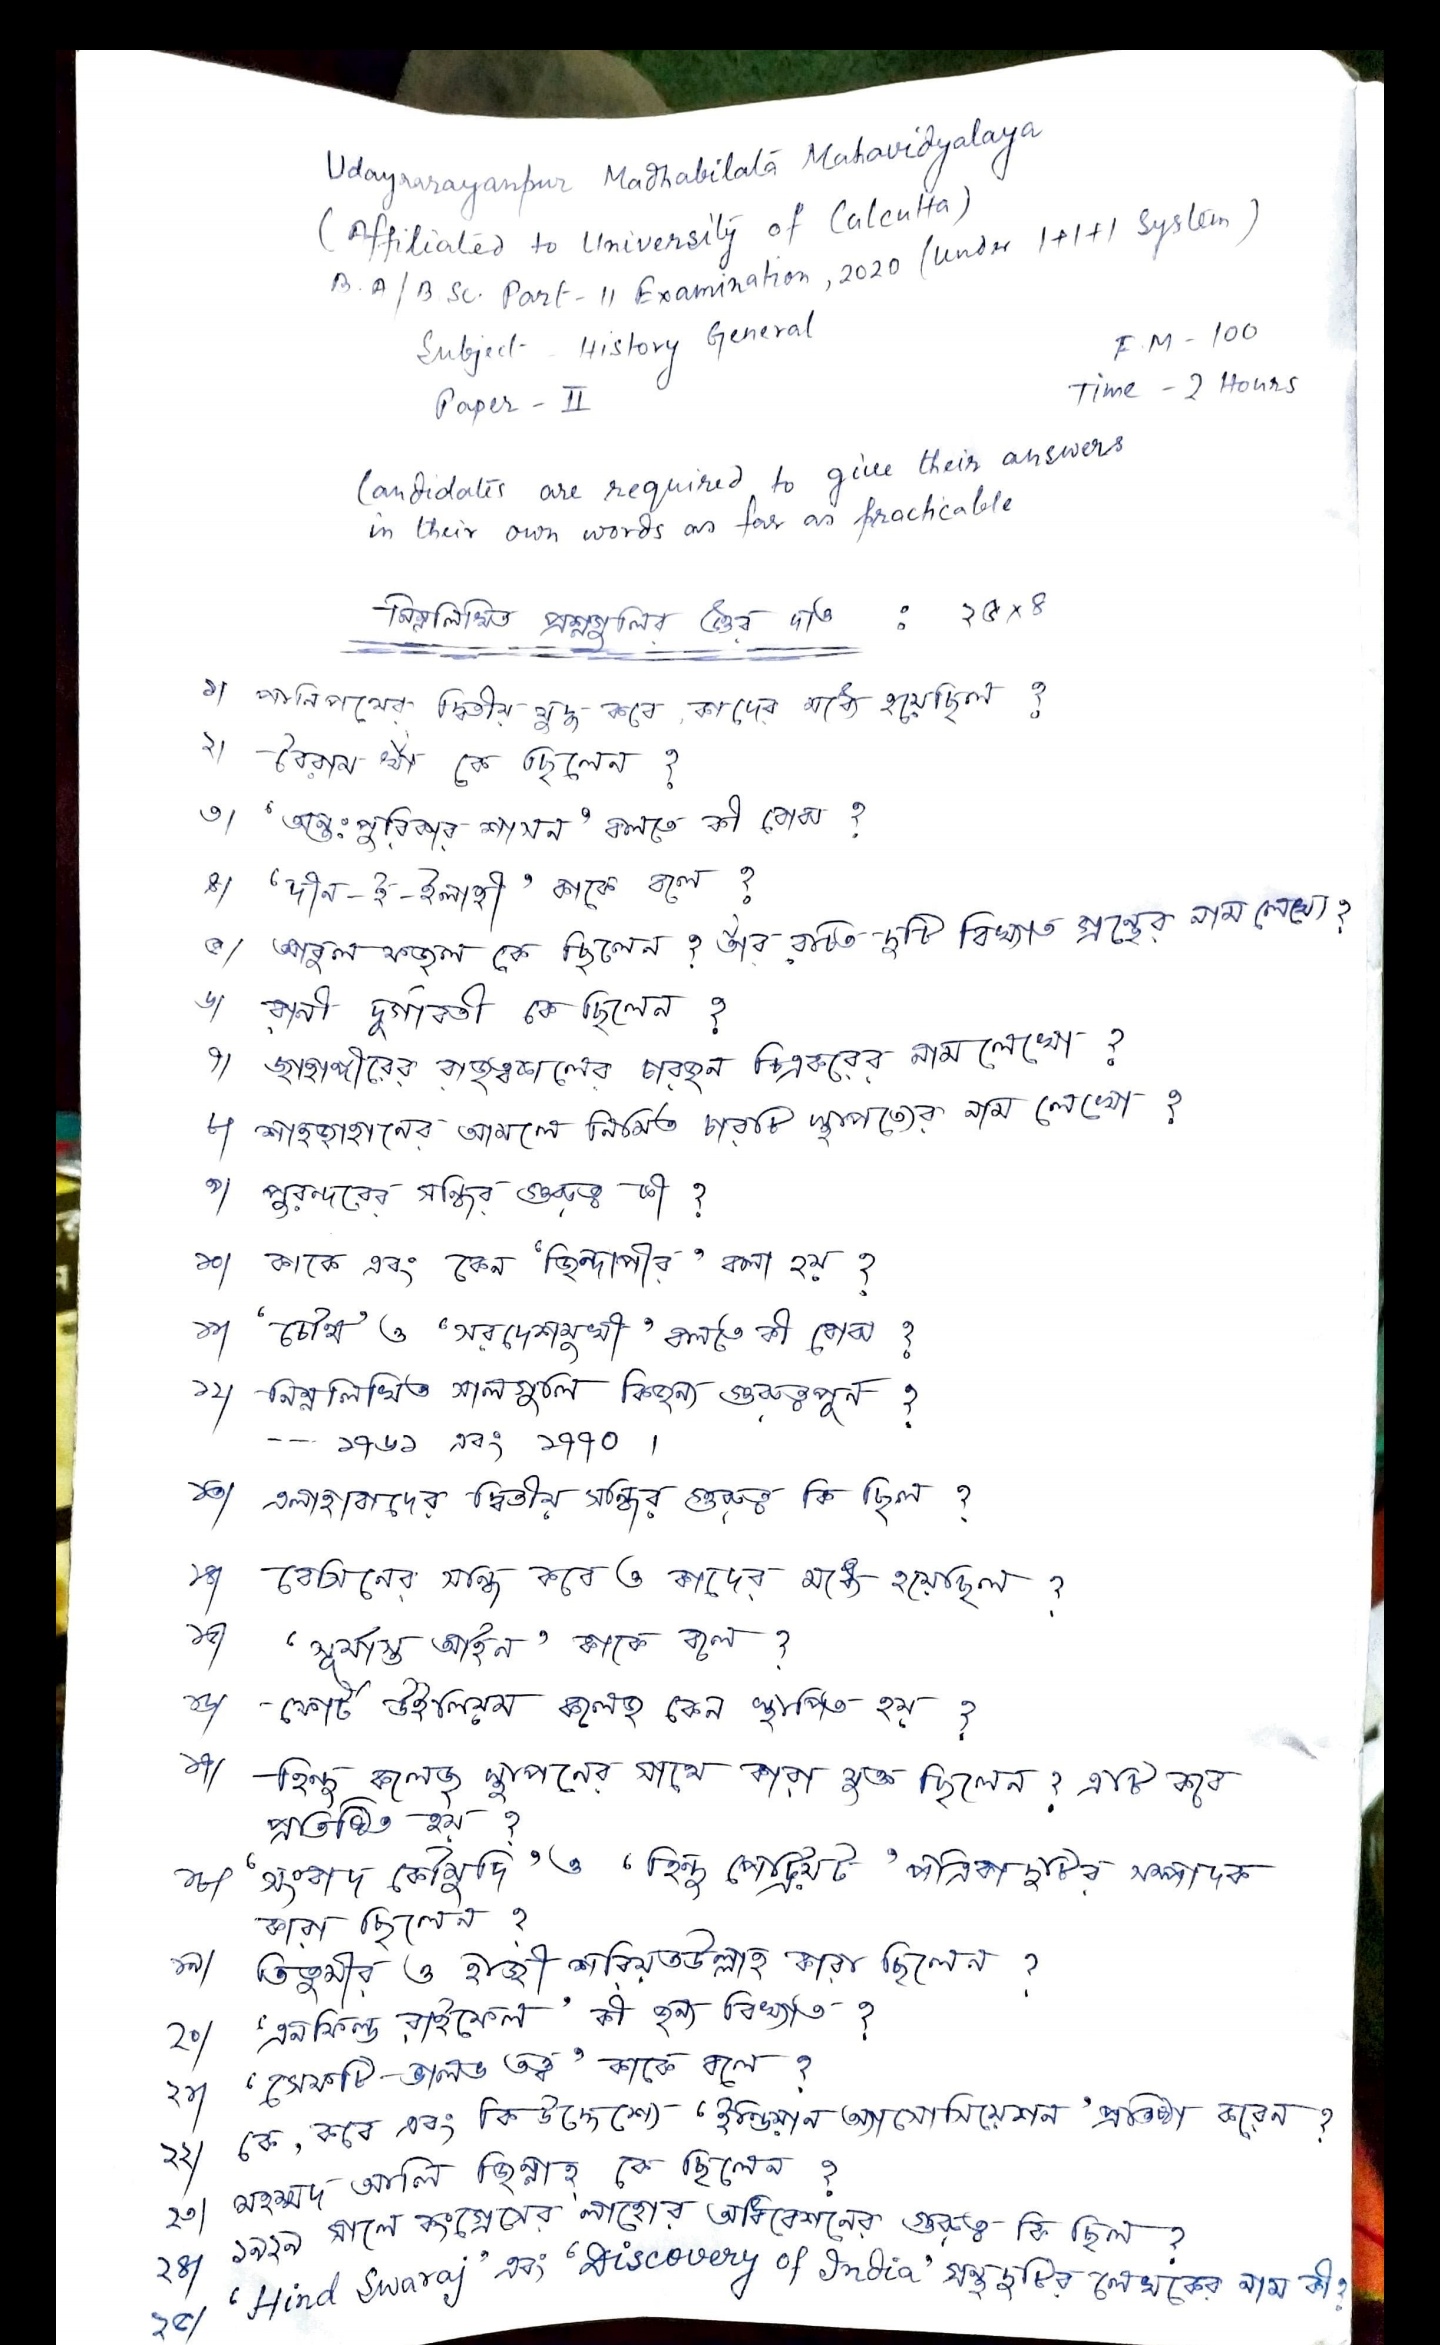 Udaynarayanpur Madhabilata Mahavidyalaya
(Affiliated to University of Calcutta)
B.A/B.Sc. Part-II Examination, 2020 (Under 1+1+1 System)
Subject- History General
F.M - 100
Paper - II
Time - 2 Hours
Candidates are required to give their answers
in their own words as far as practicable
নিম্নলিখিত প্রশ্নগুলির উত্তর দাও : ২৫×৪
১। পানিপথের দ্বিতীয় যুদ্ধ কবে, কাদের মধ্যে হয়েছিল ?
২। বৈরাম খাঁ কে ছিলেন ?
৩। 'অন্তঃপুরিকার শাসন' বলতে কী বোঝ ?
৪। 'দীন-ই-ইলাহী' কাকে বলে ?
৫। আবুল ফজল কে ছিলেন ? তাঁর রচিত দুটি বিখ্যাত গ্রন্থের নাম লেখো ?
৬। রানী দুর্গাবতী কে ছিলেন ?
৭। জাহাঙ্গীরের রাজত্বকালের চারজন চিত্রকরের নাম লেখো ?
৮। শাহজাহানের আমলে নির্মিত চারটি স্থাপত্যের নাম লেখো ?
৯। পুরন্দরের সন্ধির গুরুত্ব কী ?
১০। কাকে এবং কেন 'জিন্দাপীর' বলা হয় ?
১১। 'চৌথ' ও 'সরদেশমুখী' বলতে কী বোঝ ?
১২। নিম্নলিখিত সালগুলি কিজন্য গুরুত্বপূর্ন ?
--- ১৭৬১ এবং ১৭৭০ ।
১৩। এলাহাবাদের দ্বিতীয় সন্ধির গুরুত্ব কি ছিল ?
১৪। বেসিনের সন্ধি কবে ও কাদের মধ্যে হয়েছিল ?
১৫। 'সূর্যাস্ত আইন' কাকে বলে ?
১৬। ফোর্ট উইলিয়ম কলেজ কেন স্থাপিত হয় ?
১৭। হিন্দু কলেজ স্থাপনের সাথে কারা যুক্ত ছিলেন ? এটি কবে
প্রতিষ্ঠিত হয় ?
১৮। 'সংবাদ কৌমুদি' ও 'হিন্দু পেট্রিয়ট' পত্রিকা দুটির সম্পাদক
কারা ছিলেন ?
১৯। তিতুমীর ও হাজী শরিয়তউল্লাহ কারা ছিলেন ?
২০। 'এনফিল্ড রাইফেল' কী জন্য বিখ্যাত ?
২১। 'সেফটি-ভালভ তত্ত্ব' কাকে বলে ?
২২। কে, কবে এবং কি উদ্দেশ্যে 'ইন্ডিয়ান অ্যাসোসিয়েশন' প্রতিষ্ঠা করেন ?
২৩। মহম্মদ আলি জিন্নাহ্ কে ছিলেন ?
২৪। ১৯২৯ সালে কংগ্রেসের লাহোর অধিবেশনের গুরুত্ব কি ছিল ?
২৫। 'Hind Swaraj' এবং 'Discovery of India' গ্রন্থ দুটির লেখকের নাম কী?